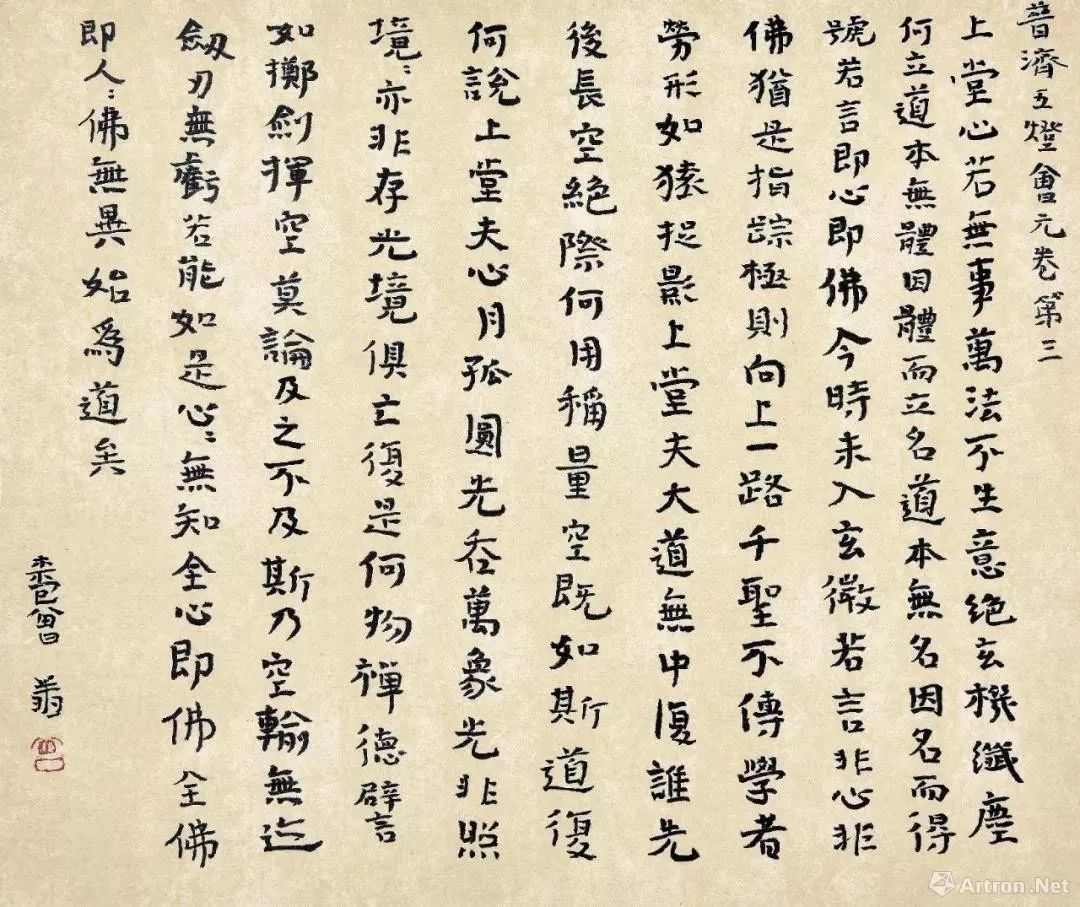 普濟五燈會元卷第三
上堂心若無事萬法不生意絕玄機纖塵
何立道本無體因體而立名道本無名因名而得
號若言即心即佛今時未入玄微若言非心非
佛猶是指蹤極則向上一路千聖不傳學者
勞形如猿捉影上堂夫大道無中復誰先
後長空絕際何用稱量空既如斯道復
何說上堂夫心月孤圓光吞萬象光非照
境〻亦非存光境俱亡復是何物禪德譬
如擲劍揮空莫論及之不及斯乃空輪無迹
劔刃無虧若能如是心〻無知全心即佛全佛
即人〻佛無異始爲道矣
翁
Artron.Net